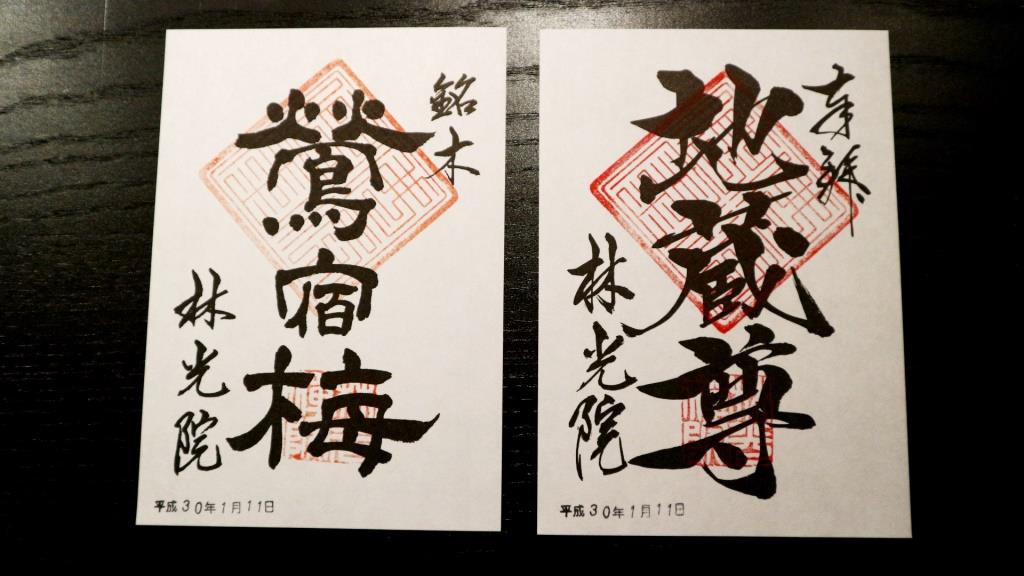 銘木
鶯宿梅
林光院
平成30年1月11日
奉拝
地蔵尊
林光院
平成30年1月11日